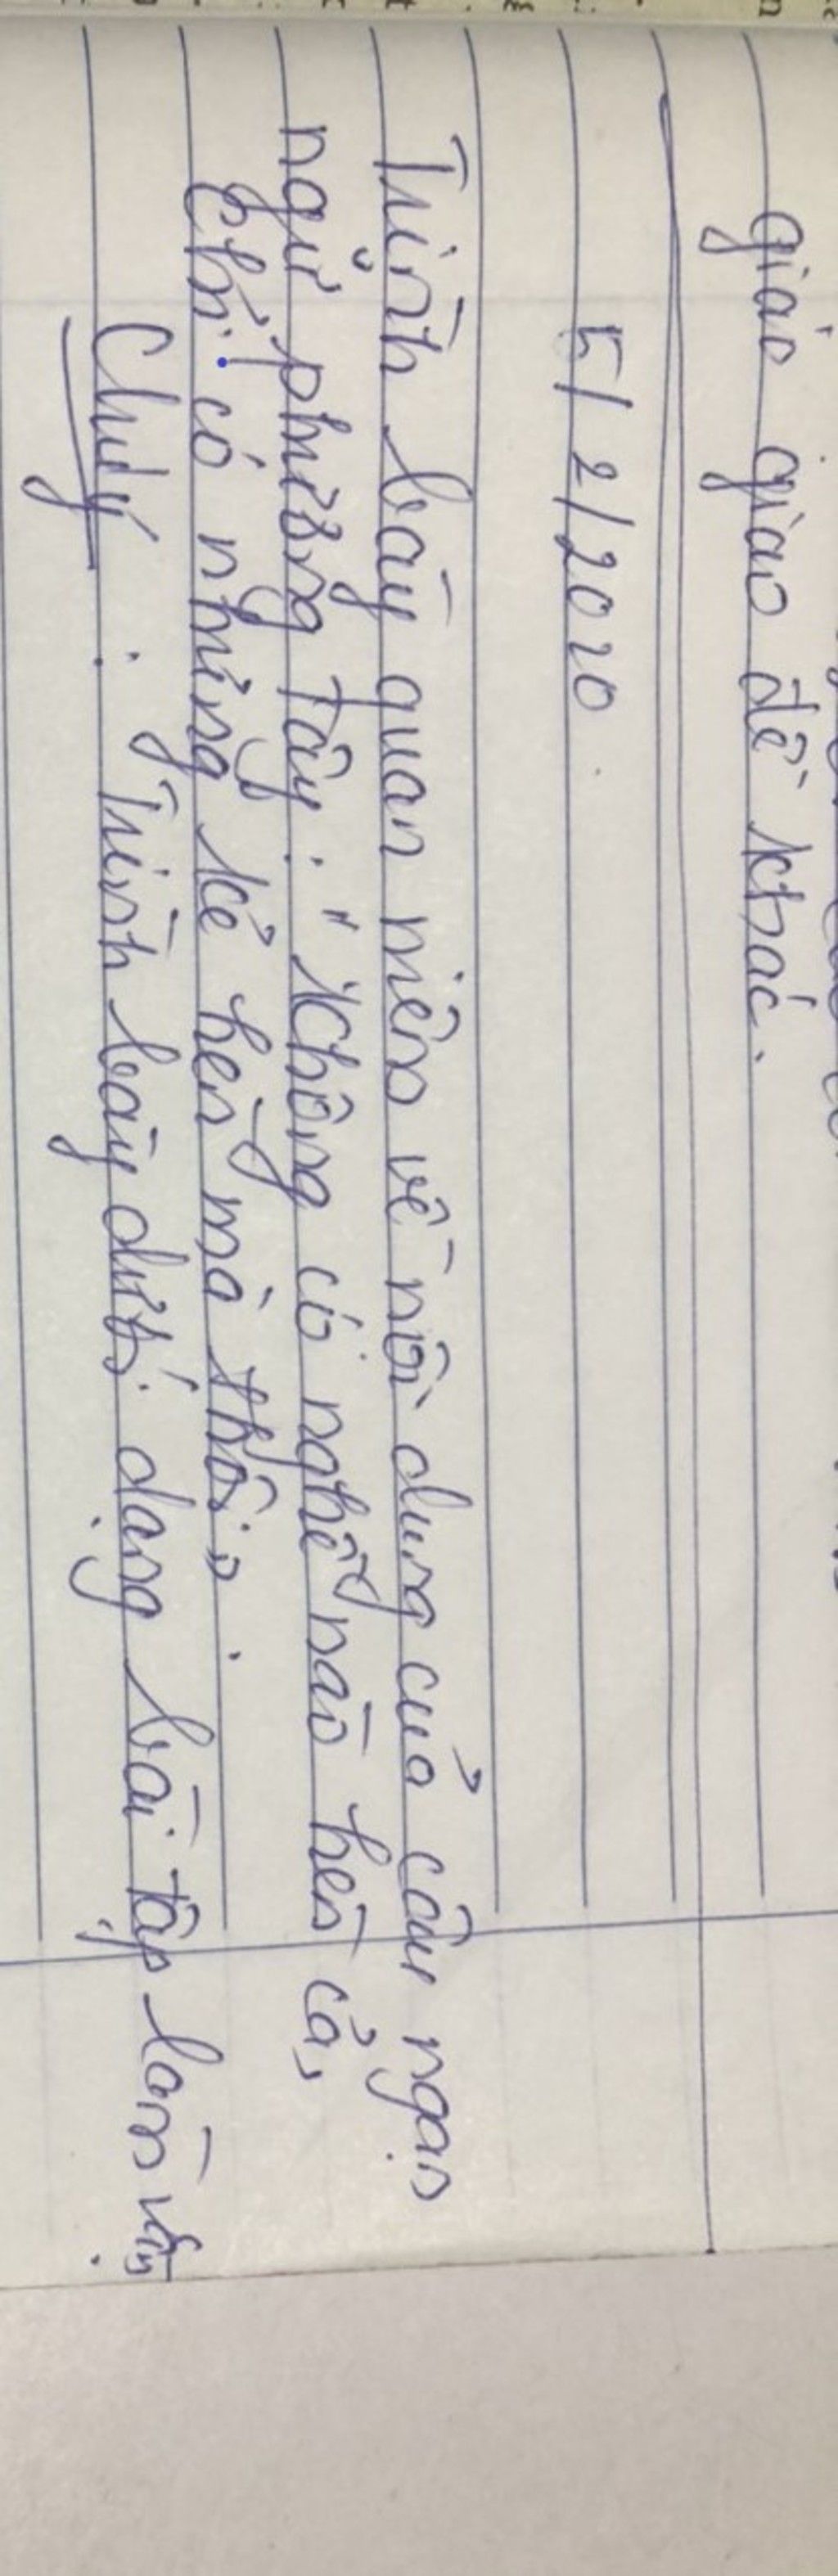 giáo giao đề khác.
5/2/2020
Trình bày quan niệm về nội dung của câu ngạn
ngữ phương Tây: "Không có nghề nào hèn cả,
chỉ có những kẻ hèn mà thôi".
Chú ý: Trình bày dưới dạng bài tập làm văn